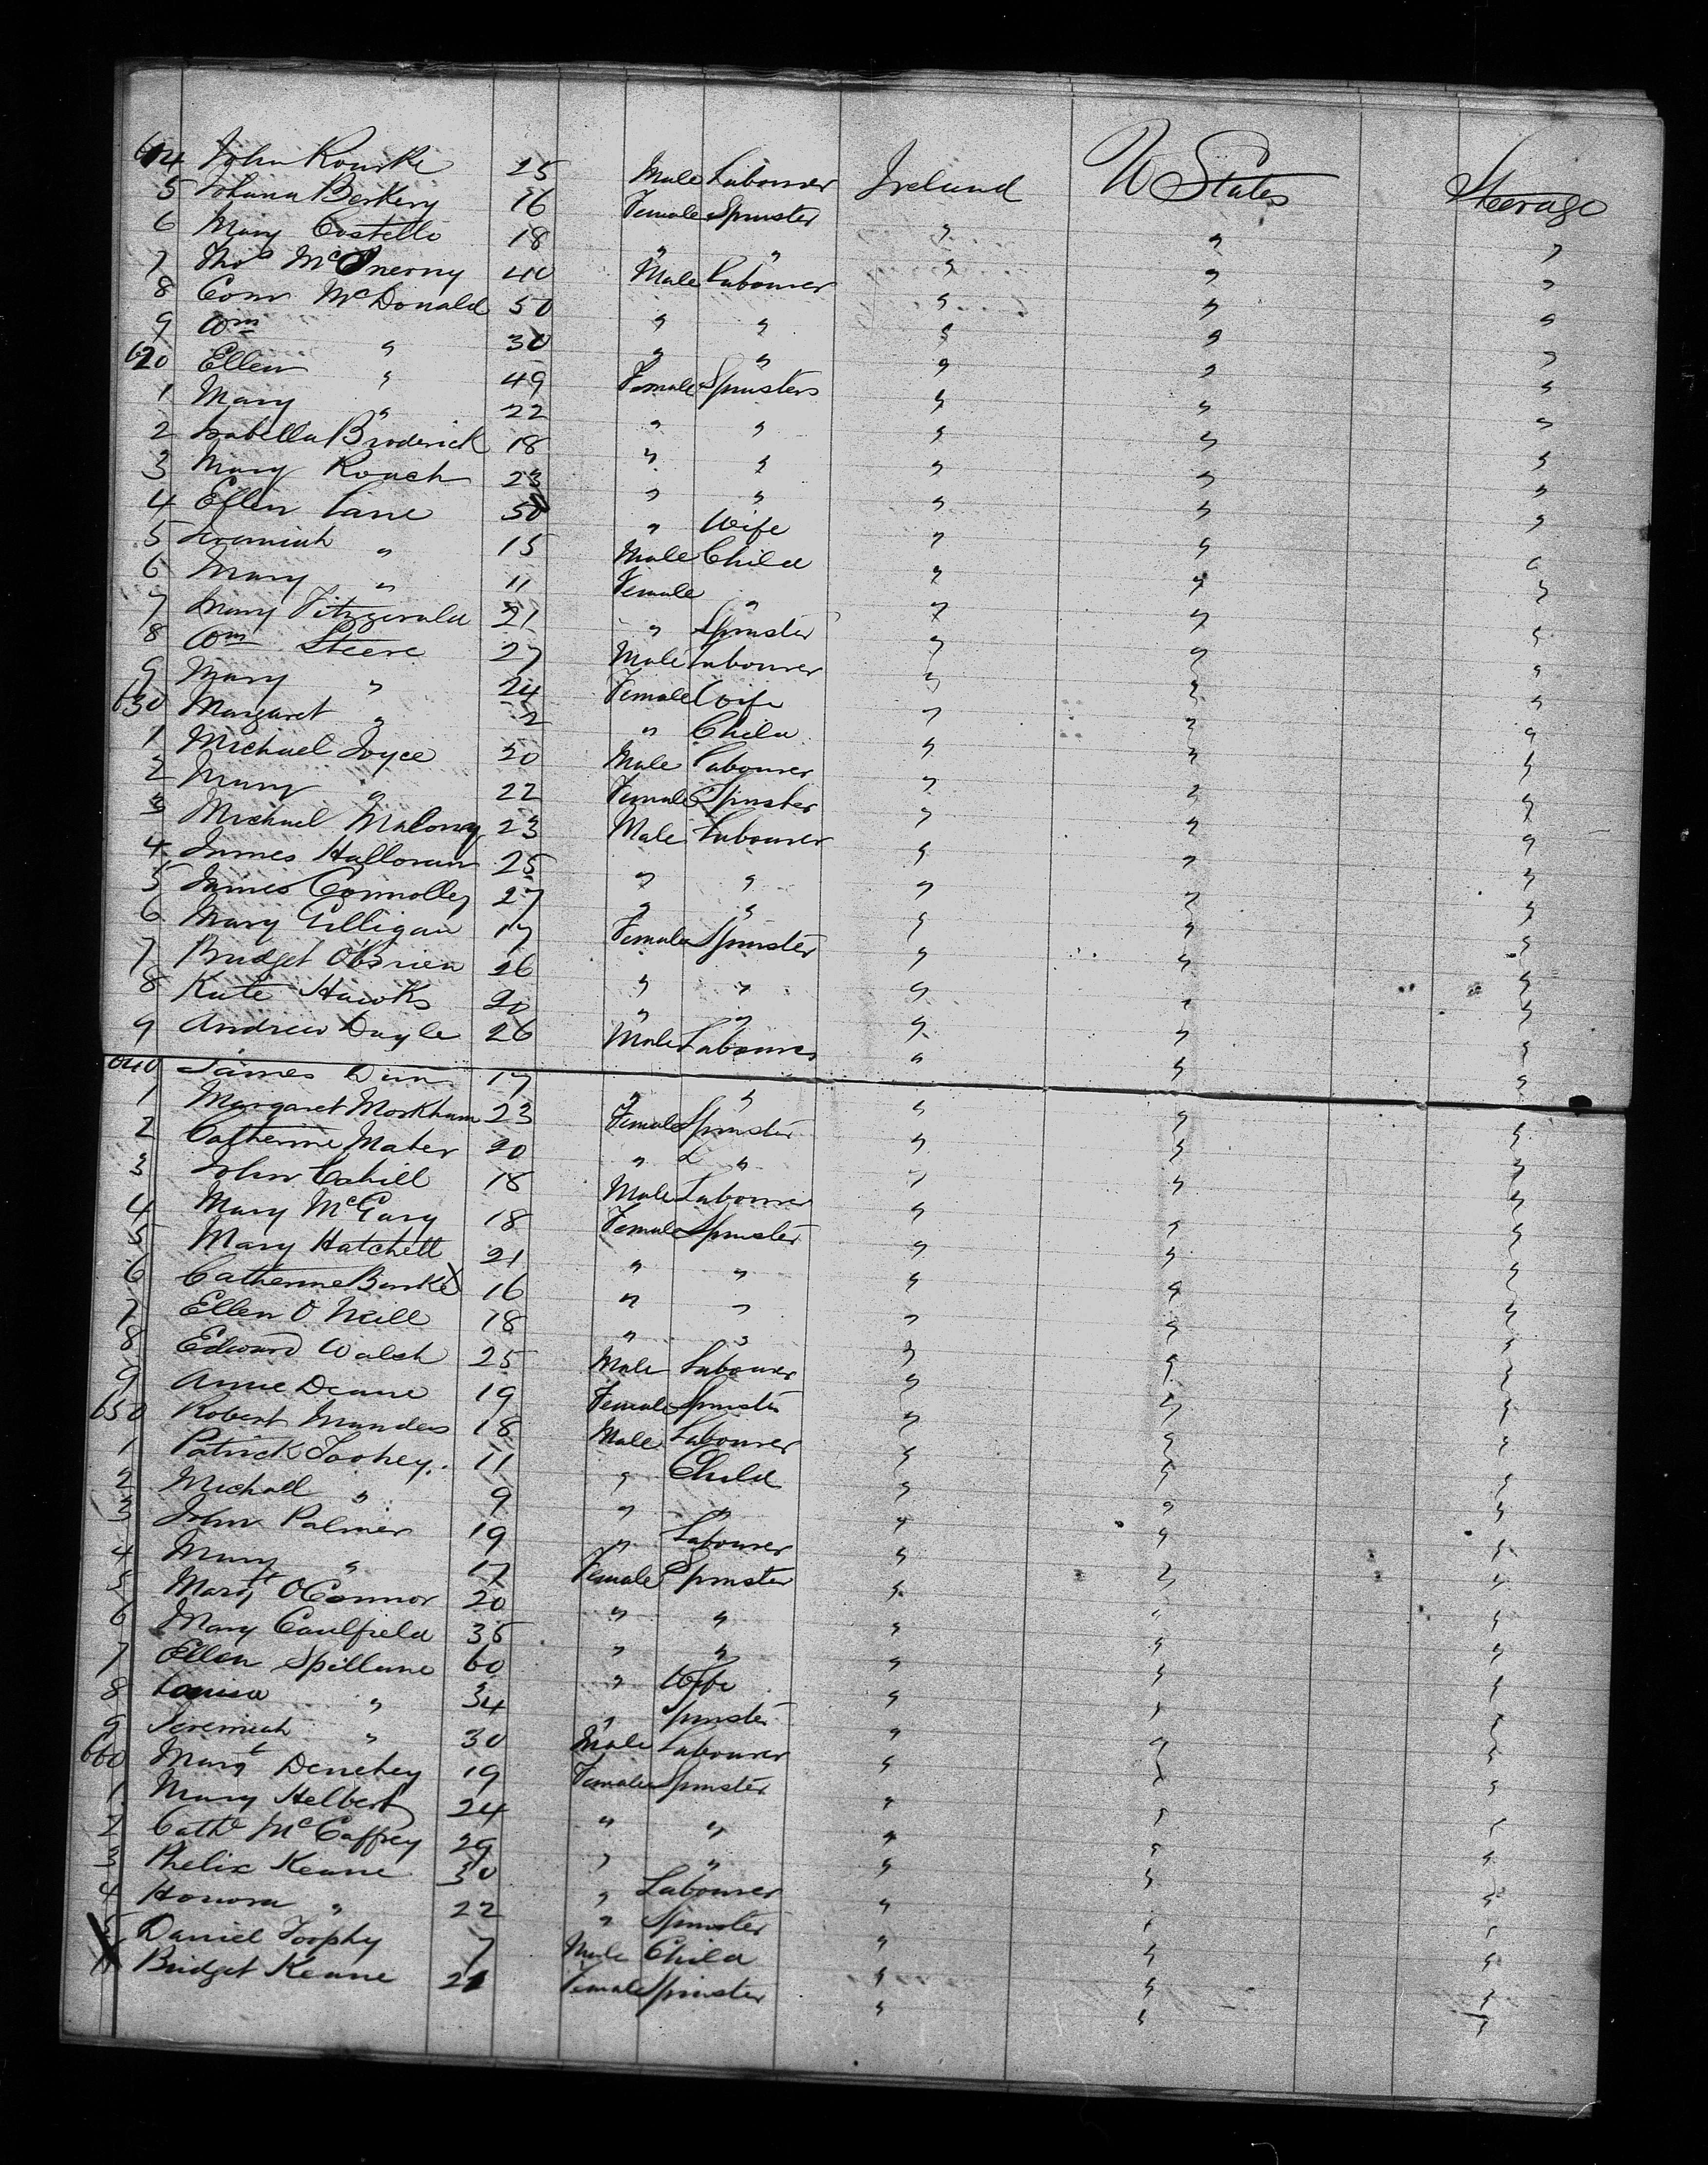 614 John Rourke 25 Male Labourer Ireland U States Steerage
5 Johana Berkery 16 Female Spinster " " "
6 Mary Costello 18 " " " " "
7 Thos McInerny 40 Male Labourer " " "
8 Conr McDonald 50 " " " " "
9 Wm " 30 " " " " "
620 Ellen " 49 Female Spinsters " " "
1 Mary " 22 " " " " "
2 Isabella Broderick 18 " " " " "
3 Mary Roach 23 " " " " "
4 Ellen Lane 50 " Wife " " "
5 Jeremiah " 15 Male Child " " "
6 Mary " 11 Female " " " "
7 Mary Fitzgerald 21 " Spinster " " "
8 Wm Steere 27 Male Labourer " " "
9 Mary " 24 Female Wife " " "
630 Margaret " 2 " Child " " "
1 Michael Joyce 20 Male Labourer " " "
2 Mary " 22 Female Spinster " " "
3 Michael Malony 23 Male Labourer " " "
4 James Halloran 25 " " " " "
5 James Connolley 27 " " " " "
6 Mary Gilligan 17 Female Spinster " " "
7 Bridget OBrien 26 " " " " "
8 Kate Hawks 20 " " " " "
9 Andrew Dayle 26 Male Labourer " " "
640 James Dunn 17 " " " " "
1 Margaret Markham 23 Female Spinster " " "
2 Catherine Maher 20 " " " " "
3 John Cahill 18 Male Labourer " " "
4 Mary McGary 18 Female Spinster " " "
5 Mary Hatchett 21 " " " " "
6 Catherine Burke 16 " " " " "
7 Ellen O Neill 18 " " " " "
8 Edward Walsh 25 Male Labourer " " "
9 Anne Deane 19 Female Spinster " " "
650 Robert Manders 18 Male Labourer " " "
1 Patrick Toohey. 11 " Child " " "
2 Michall " 9 " " " " "
3 John Palmer 19 " Labourer " " "
4 Mary " 17 Female Spinster " " "
5 Margt OConnor 20 " " " " "
6 Mary Caulfield 35 " " " " "
7 Ellen Spillane 60 " Wife " " "
8 Louisa " 34 " Spinster " " "
9 Jeremiah " 30 Male Labourer " " "
660 Margt Denehey 19 Female Spinster " " "
1 Mary Helbert 24 " " " " "
2 Cathe McCaffrey 29 " " " " "
3 Phelix Keane 30 " Labourer " " "
4 Honora " 22 " Spinster " " "
5 Daniel Toophy 7 Male Child " " "
Bridget Keane 21 Female Spinster " " "